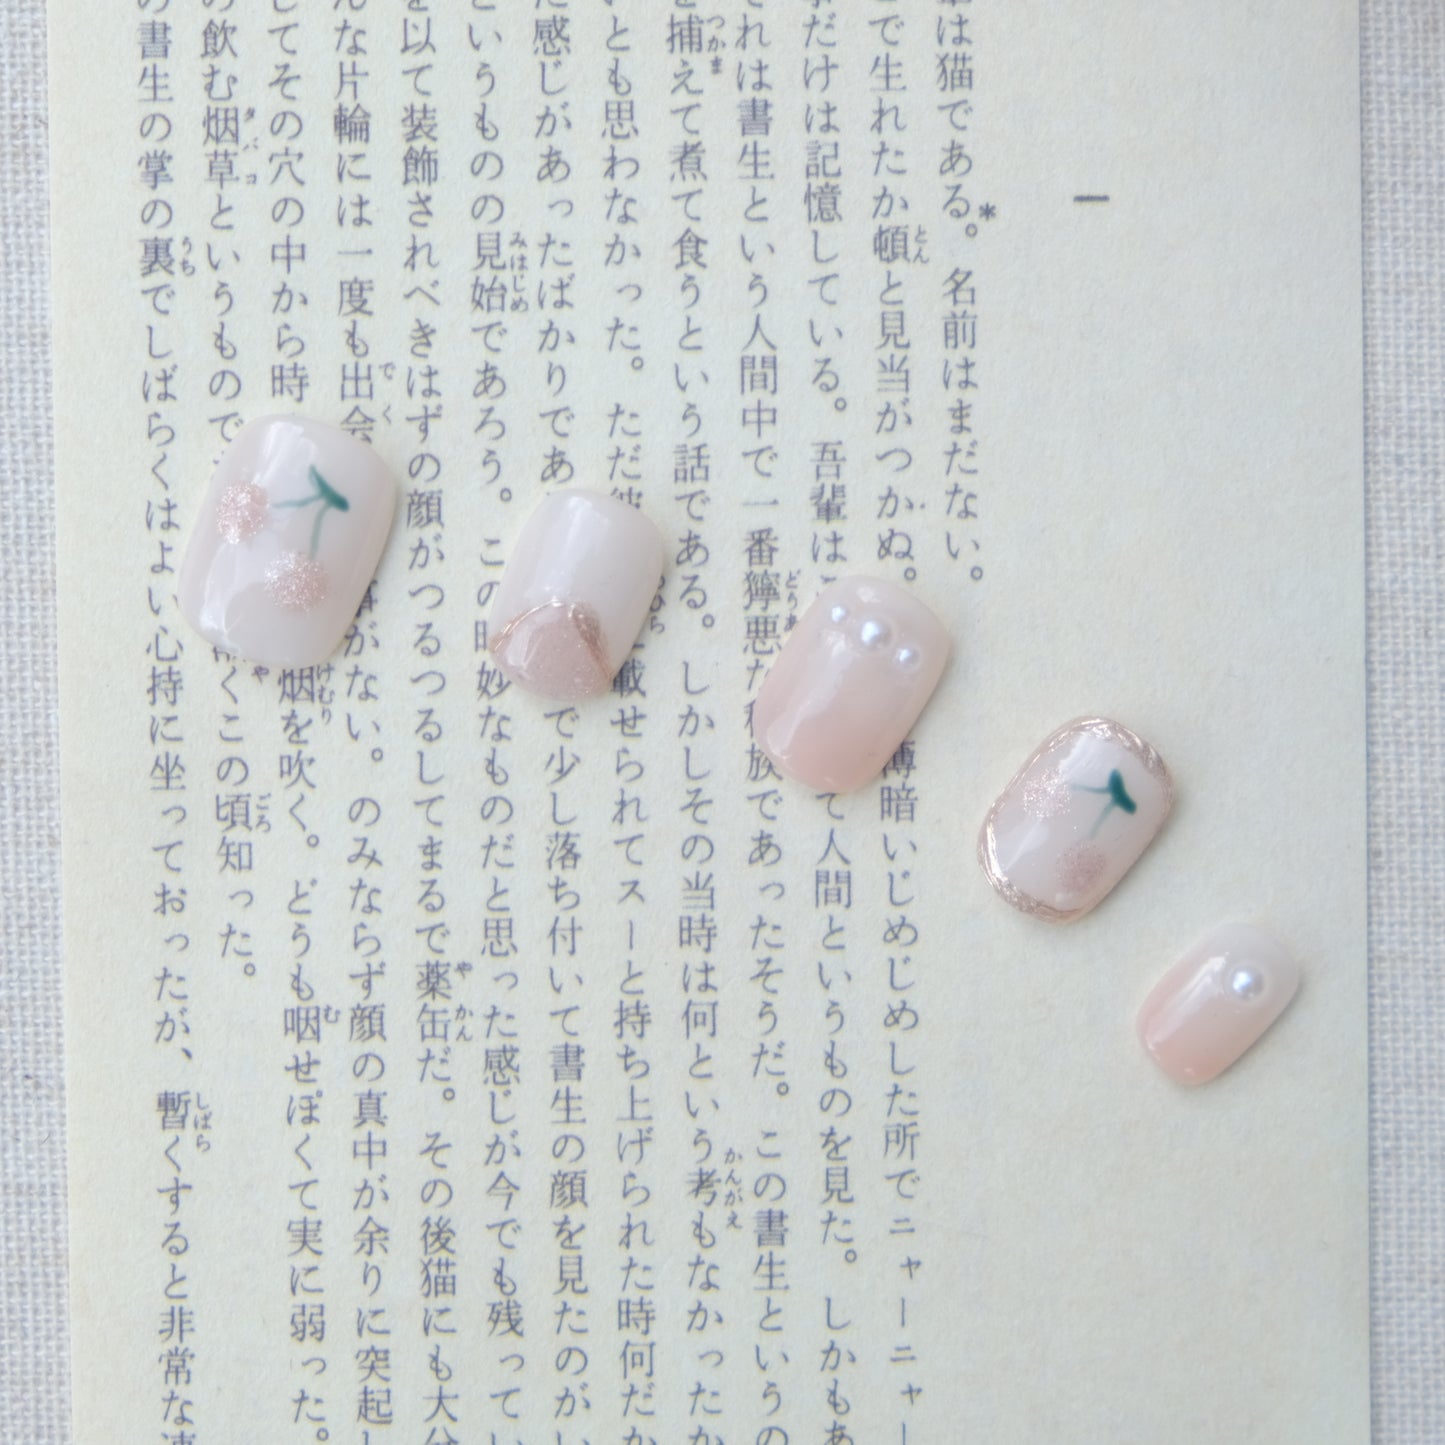 一
は猫である*。名前はまだない。
で生れたか頓と見当がつかぬ。薄暗いじめじめした所でニャーニャー
だけは記憶している。吾輩はて人間というものを見た。しかもあ
れは書生という人間中で一番獰悪な族であったそうだ。この書生というの
を捕えて煮て食うという話である。しかしその当時は何という考もなかったか
いとも思わなかった。ただ彼載せられてスーと持ち上げられた時何だか
た感じがあったばかりであで少し落ち付いて書生の顔を見たのがい
というものの見始であろう。この時妙なものだと思った感じが今でも残ってい
を以て装飾されべきはずの顔がつるつるしてまるで薬缶だ。その後猫にも大分
んな片輪には一度も出会事がない。のみならず顔の真中が余りに突起し
してその穴の中から時烟を吹く。どうも咽せぽくて実に弱った。
の飲む烟草というものでくこの頃知った。
の書生の掌の裏でしばらくはよい心持に坐っておったが、暫くすると非常な速